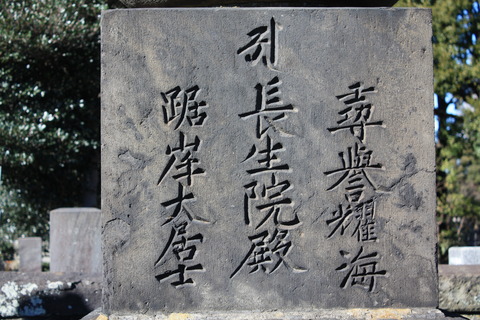 尋譽耀海
長生院殿
踞岸大居士